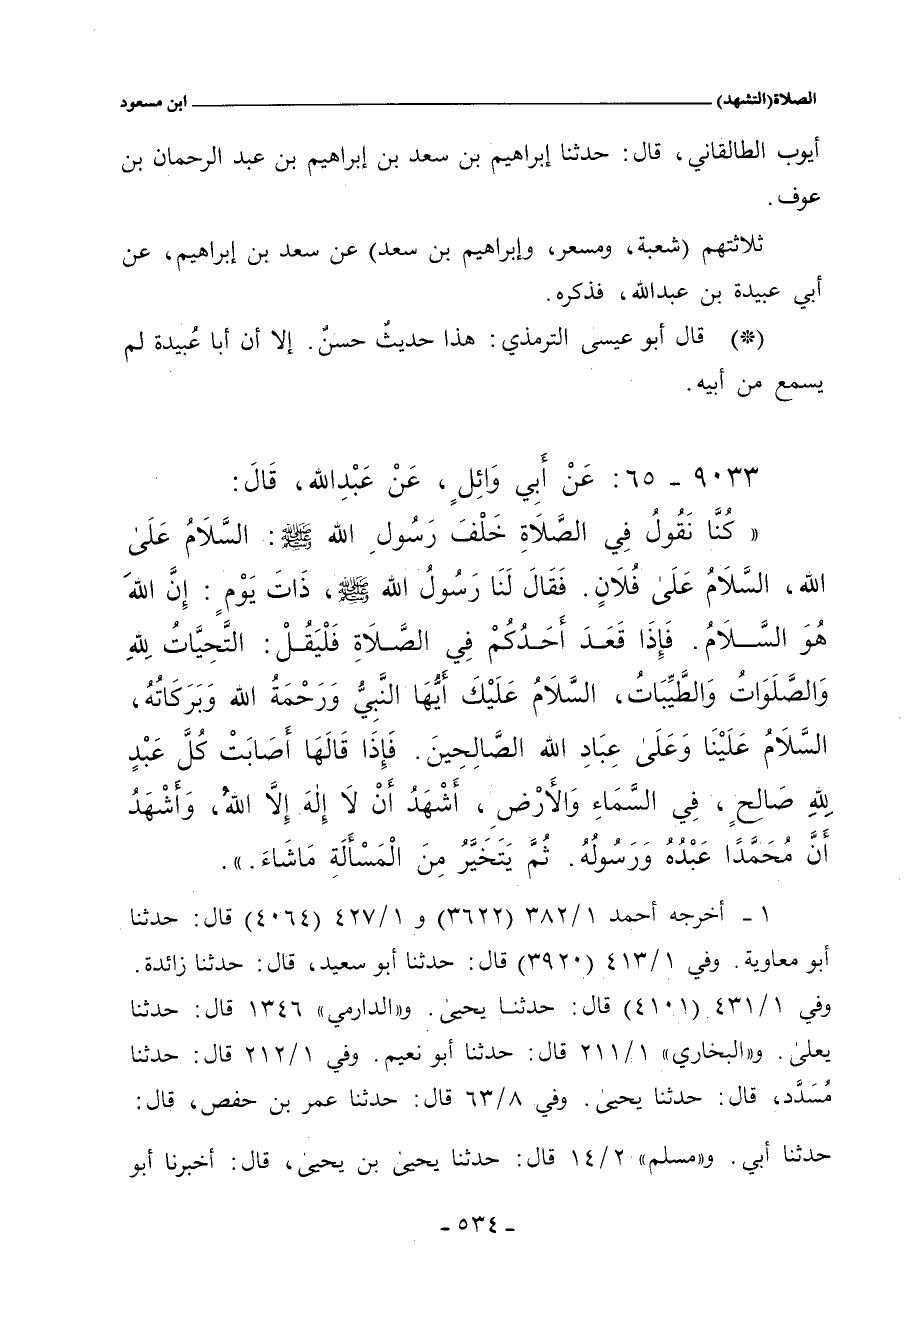 الصلاة (التشهد) ابن مسعود
أيوب الطالقاني، قال: حدثنا إبراهيم بن سعد بن إبراهيم بن عبد الرحمان بن
عوف.
ثلاثتهم (شعبة، ومسعر، وإبراهيم بن سعد) عن سعد بن إبراهيم، عن
أبي عبيدة بن عبدالله، فذكره.
(*) قال أبو عيسى الترمذي: هذا حديثٌ حسنٌ. إلا أن أبا عُبيدة لم
يسمع من أبيه.
٩٠٣٣ - ٦٥: عَنْ أَبِي وَائِلٍ، عَنْ عَبْدِالله، قَالَ:
« كُنَّا نَقُولُ فِي الصَّلَاةِ خَلْفَ رَسُولِ الله ﷺ: السَّلَامُ عَلَىٰ
الله، السَّلَامُ عَلَىٰ فُلَانٍ. فَقَالَ لَنَا رَسُولُ الله ﷺ، ذَاتَ يَوْمٍ: إِنَّ اللهَ
هُوَ السَّلَامُ. فَإِذَا قَعَدَ أَحَدُكُمْ فِي الصَّلَاةِ فَلْيَقُلْ: التَّحِيَّاتُ لِلهِ
وَالصَّلَوَاتُ وَالطَّيِّبَاتُ، السَّلَامُ عَلَيْكَ أَيُّهَا النَّبِيُّ وَرَحْمَةُ الله وَبَرَكَاتُهُ،
السَّلَامُ عَلَيْنَا وَعَلَىٰ عِبَادِ الله الصَّالِحِينَ. فَإِذَا قَالَهَا أَصَابَتْ كُلَّ عَبْدٍ
لِلهِ صَالِحٍ، فِي السَّمَاءِ وَالْأَرْضِ، أَشْهَدُ أَنْ لَا إِلٰهَ إِلَّا اللهُ، وَأَشْهَدُ
أَنَّ مُحَمَّدًا عَبْدُهُ وَرَسُولُهُ. ثُمَّ يَتَخَيَّرُ مِنَ الْمَسْأَلَةِ مَاشَاءَ.».
١ - أخرجه أحمد ٣٨٢/١ (٣٦٢٢) و ٤٢٧/١ (٤٠٦٤) قال: حدثنا
أبو معاوية. وفي ٤١٣/١ (٣٩٢٠) قال: حدثنا أبو سعيد، قال: حدثنا زائدة.
وفي ٤٣١/١ (٤١٠١) قال: حدثنا يحيىٰ. و«الدارمي» ١٣٤٦ قال: حدثنا
يعلىٰ. و«البخاري» ٢١١/١ قال: حدثنا أبو نعيم. وفي ٢١٢/١ قال: حدثنا
مُسَدَّد، قال: حدثنا يحيىٰ. وفي ٦٣/٨ قال: حدثنا عمر بن حفص، قال:
حدثنا أبي. و«مسلم» ١٤/٢ قال: حدثنا يحيىٰ بن يحيىٰ، قال: أخبرنا أبو
- ٥٣٤ -